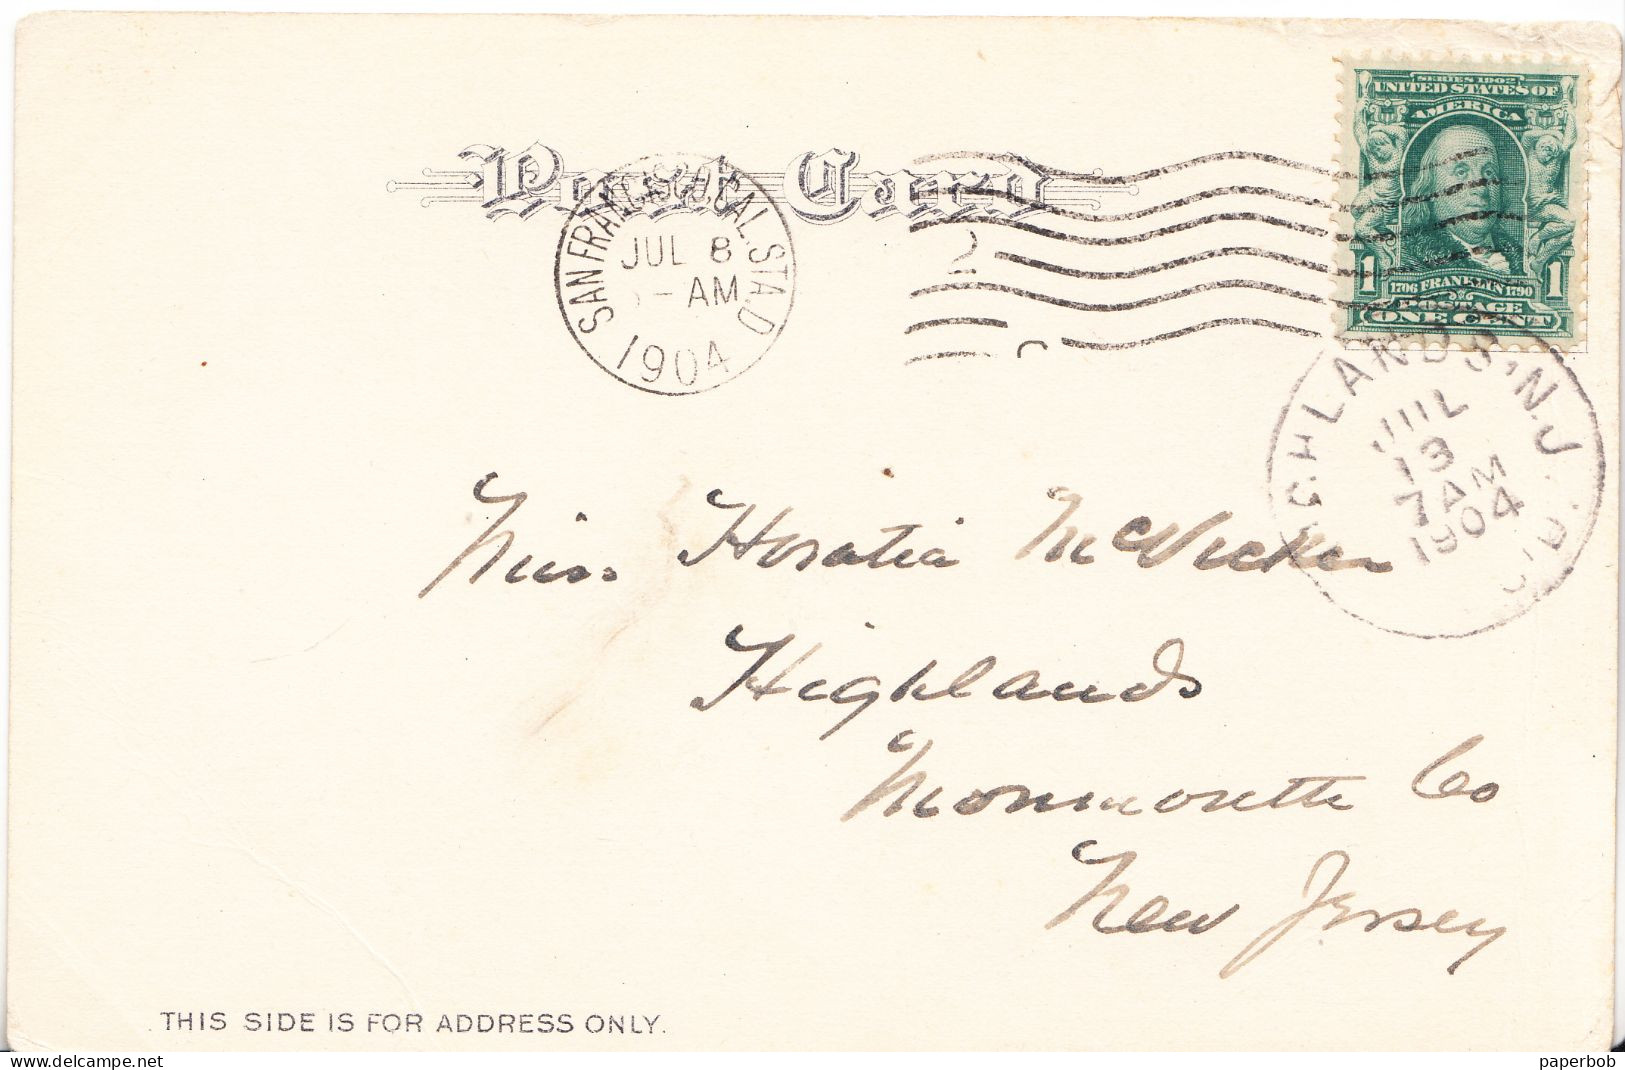 Post Card
SAN FRANCISCO, CAL. STA. D
JUL 8
-AM
1904
2
SERIES 1902
UNITED STATES OF
AMERICA
1 1
1706 FRANKLIN 1790
POSTAGE
ONE CENT
HIGHLANDS, N.J.
JUL
13
7 AM
1904
Miss Horatia McVicker
Highlands
Monmouth Co
New Jersey
THIS SIDE IS FOR ADDRESS ONLY.
www.delcampe.net
paperbob